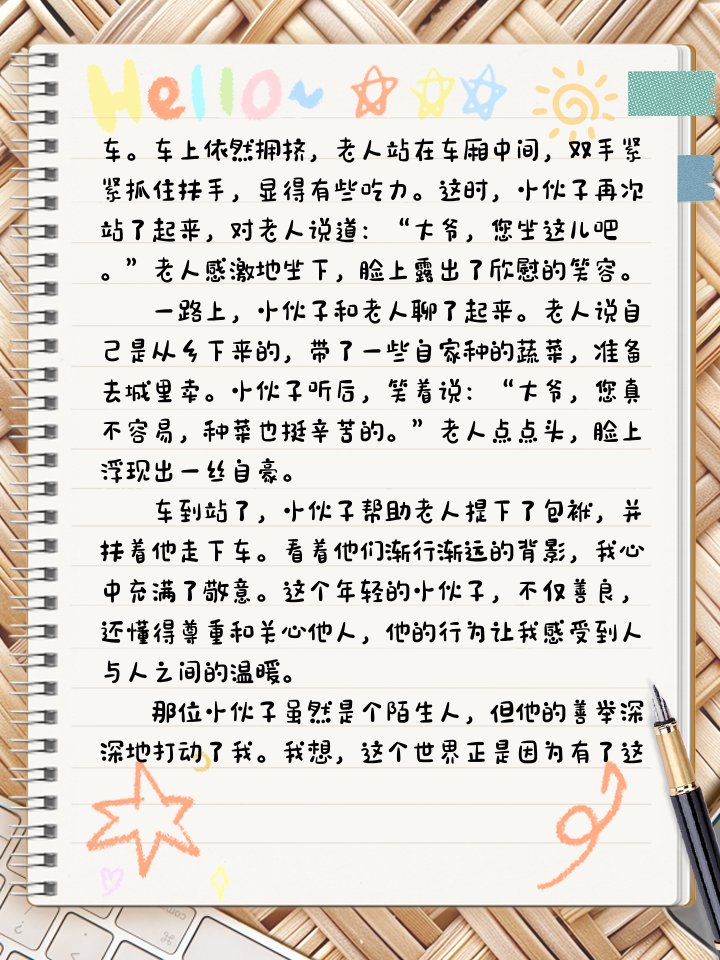 Hello~
车。车上依然拥挤，老人站在车厢中间，双手紧
紧抓住扶手，显得有些吃力。这时，小伙子再次
站了起来，对老人说道：“大爷，您坐这儿吧
。”老人感激地坐下，脸上露出了欣慰的笑容。
一路上，小伙子和老人聊了起来。老人说自
己是从乡下来的，带了一些自家种的蔬菜，准备
去城里卖。小伙子听后，笑着说：“大爷，您真
不容易，种菜也挺辛苦的。”老人点点头，脸上
浮现出一丝自豪。
车到站了，小伙子帮助老人提下了包袱，并
扶着他走下车。看着他们渐行渐远的背影，我心
中充满了敬意。这个年轻的小伙子，不仅善良，
还懂得尊重和关心他人，他的行为让我感受到人
与人之间的温暖。
那位小伙子虽然是个陌生人，但他的善举深
深地打动了我。我想，这个世界正是因为有了这